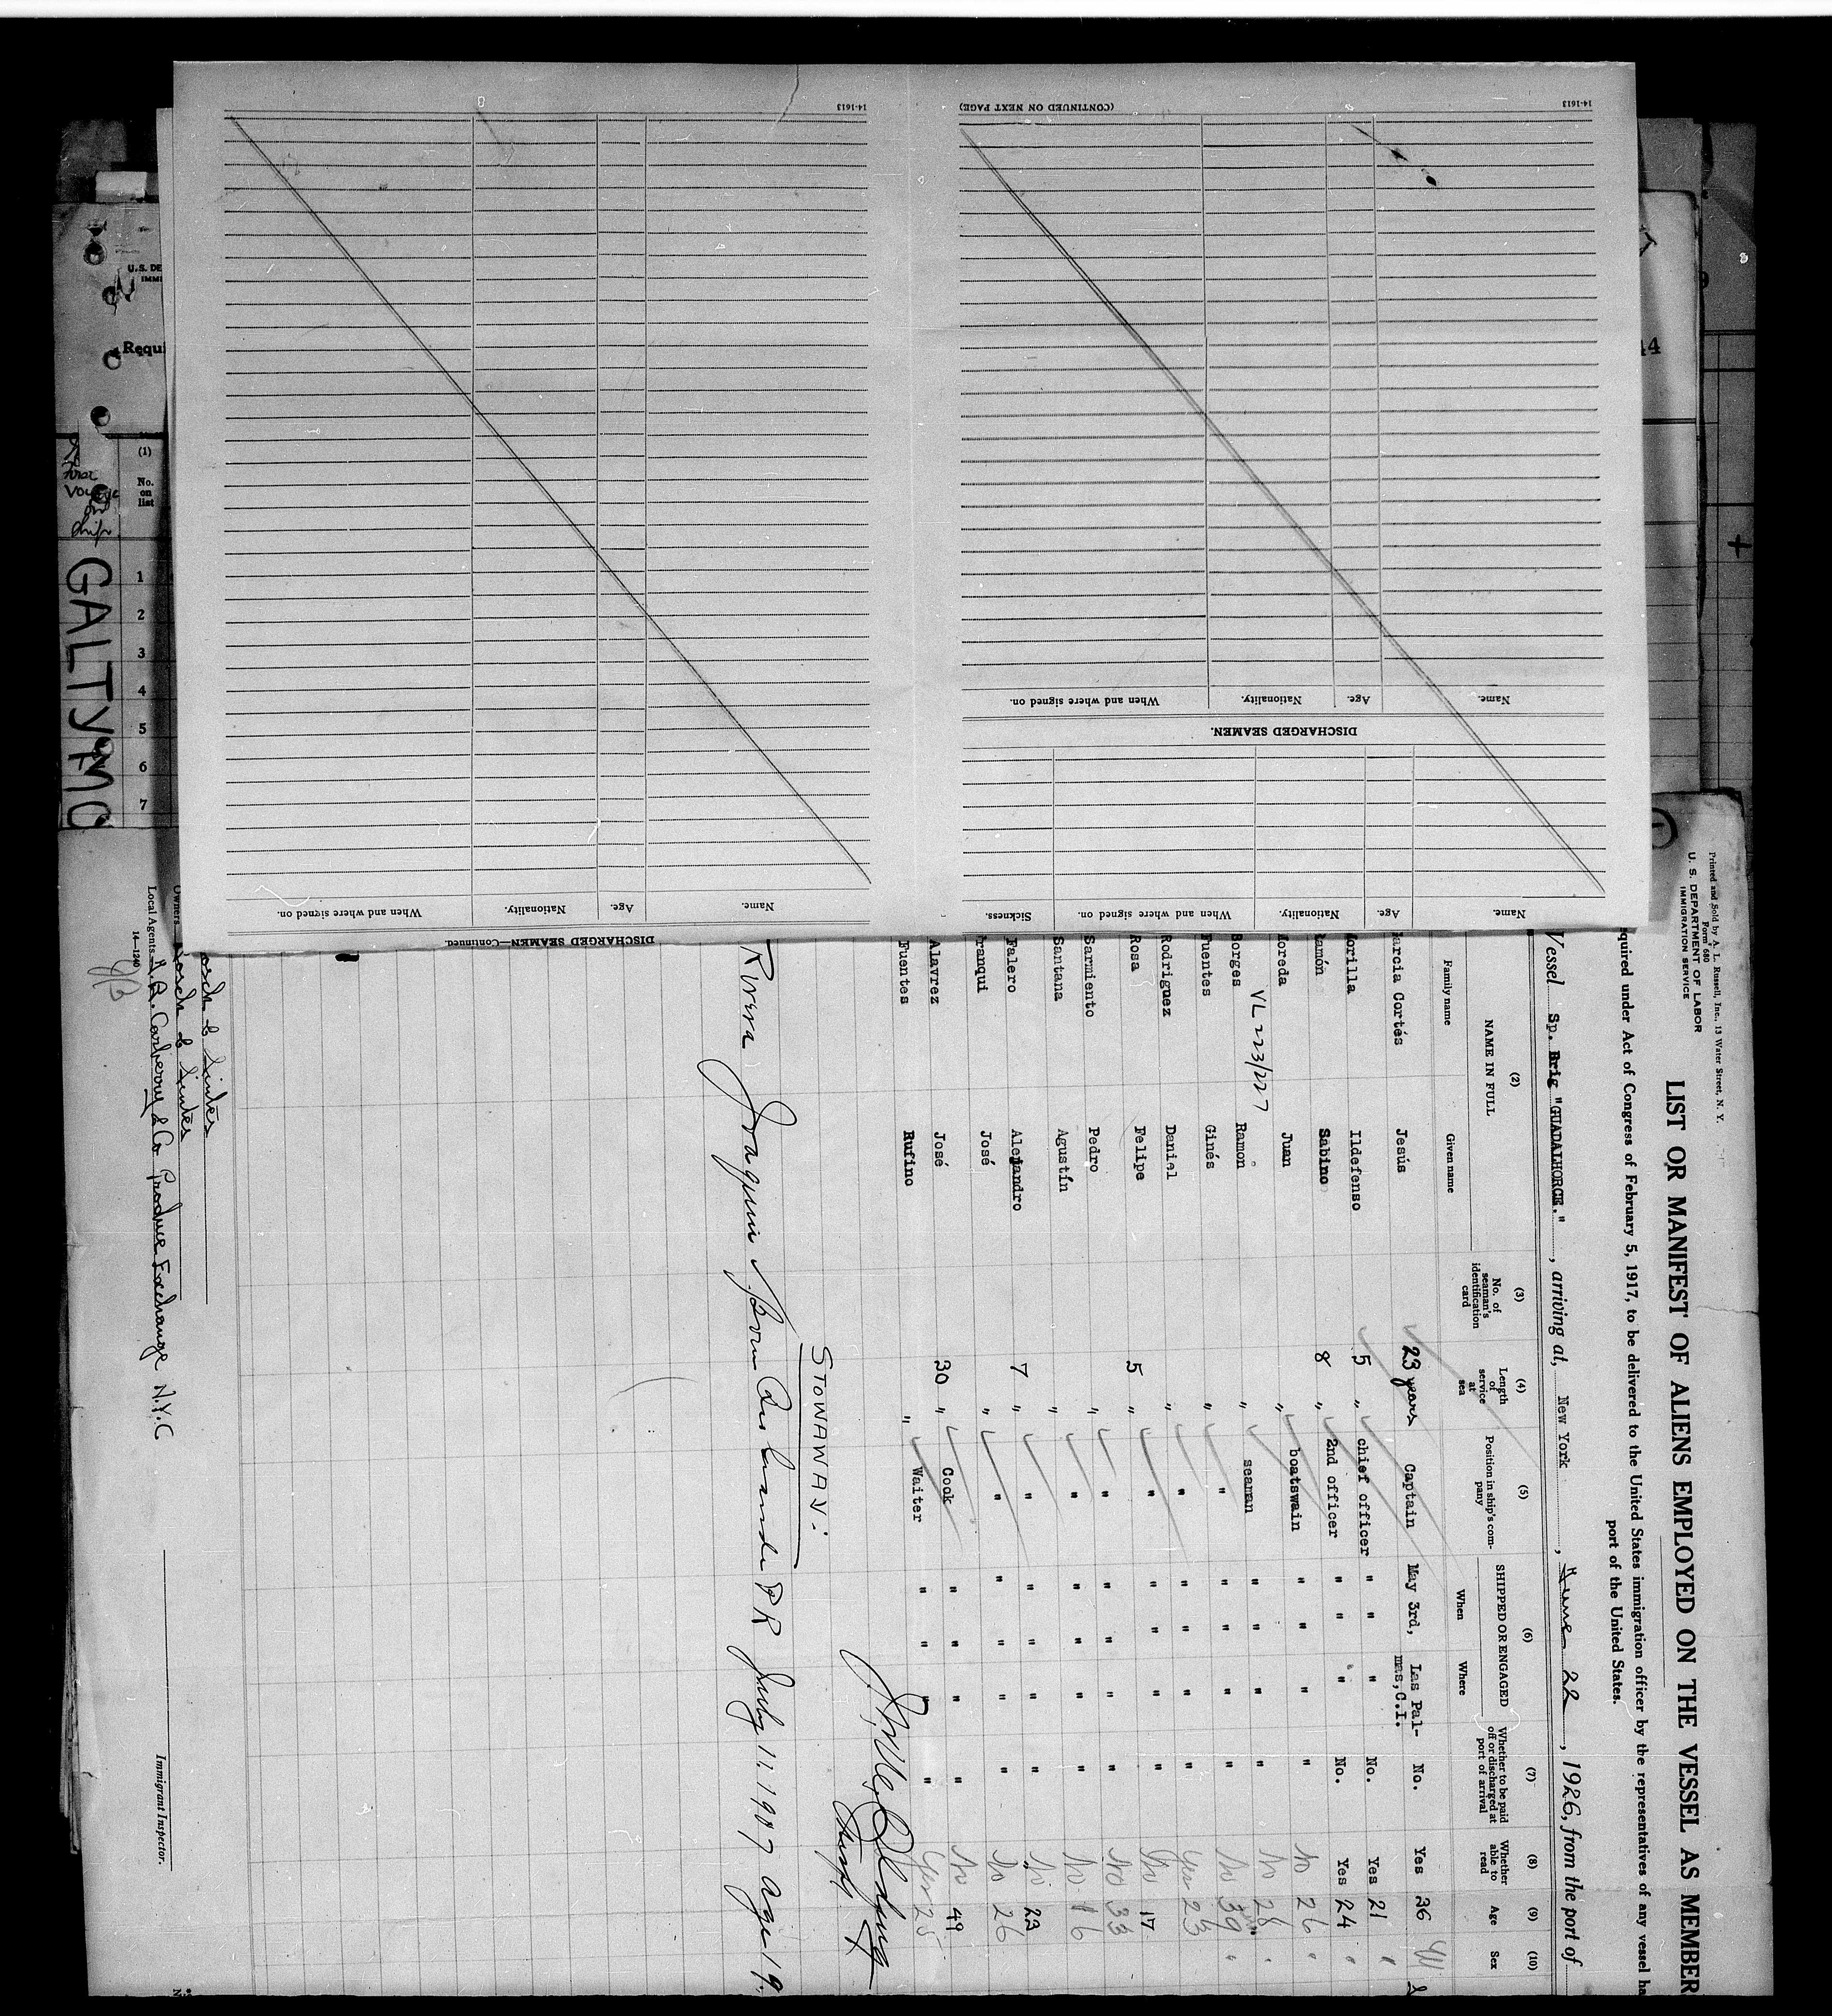 Printed and Sold by A. L. Russell, Inc., 13 Water Street, N. Y.
Form 680
U. S. DEPARTMENT OF LABOR
IMMIGRATION SERVICE
LIST OR MANIFEST OF ALIENS EMPLOYED ON THE VESSEL AS MEMBER
quired under Act of Congress of February 5, 1917, to be delivered to the United States immigration officer by the representatives of any vessel ha
port of the United States.
Vessel Sp. Brig "GUADALHORCE." , arriving at, New York , June 22 , 1926, from the port of
(2) (3) (4) (5) (6) (7) (8) (9) (10)
NAME IN FULL
Family name Given name
No. of seaman's identification card
Length of service at sea
Position in ship's company
SHIPPED OR ENGAGED
When Where
Whether to be paid off or discharged at port of arrival
Whether able to read
Age
Sex
arcia Cortés Jesús 23 years Captain May 3rd, Las Palmas, C.I. No. Yes 36
orilla Ildefonso 5 " chief officer " " " No. Yes 21
amón Sabino 8 " 2nd officer " " " No. Yes 24
oreda Juan " boatswain " " " " No 26
VL 223/227
Borges Ramon " seaman " " " " No 28
Fuentes Ginés " " " " " " No 39
Rodriguez Daniel " " " " " " Yes 23
Rosa Felipe 5 " " " " " 17
Sarmiento Pedro " " " " " " No 33
Santana Agustín " " " " " " No 16
Falero Alejandro 7 " " " " " " No 23
ranqui José " " " " " " No 26
Alavrez José 30 " Cook " " " " No 49
Fuentes Rufino " Waiter " " " " Yes 25
STOWAWAY:
Rivera Joaquin Born PR July 11. 1907 Age 19.
Owners
Local Agents J. A. Carberry & Co Produce Exchange N.Y.C
14—1240
Immigrant Inspector.
14-1613
(CONTINUED ON NEXT PAGE)
14-1613
Name. Age. Nationality. When and where signed on. Sickness.
DISCHARGED SEAMEN.
Name. Age. Nationality. When and where signed on.
DISCHARGED SEAMEN—Continued.
Name. Age. Nationality. When and where signed on.
U.S. DE
IMMI
Requi
(1)
No. on list
1
2
3
4
5
6
7
First
Voyage
ship
GALTYMO
44